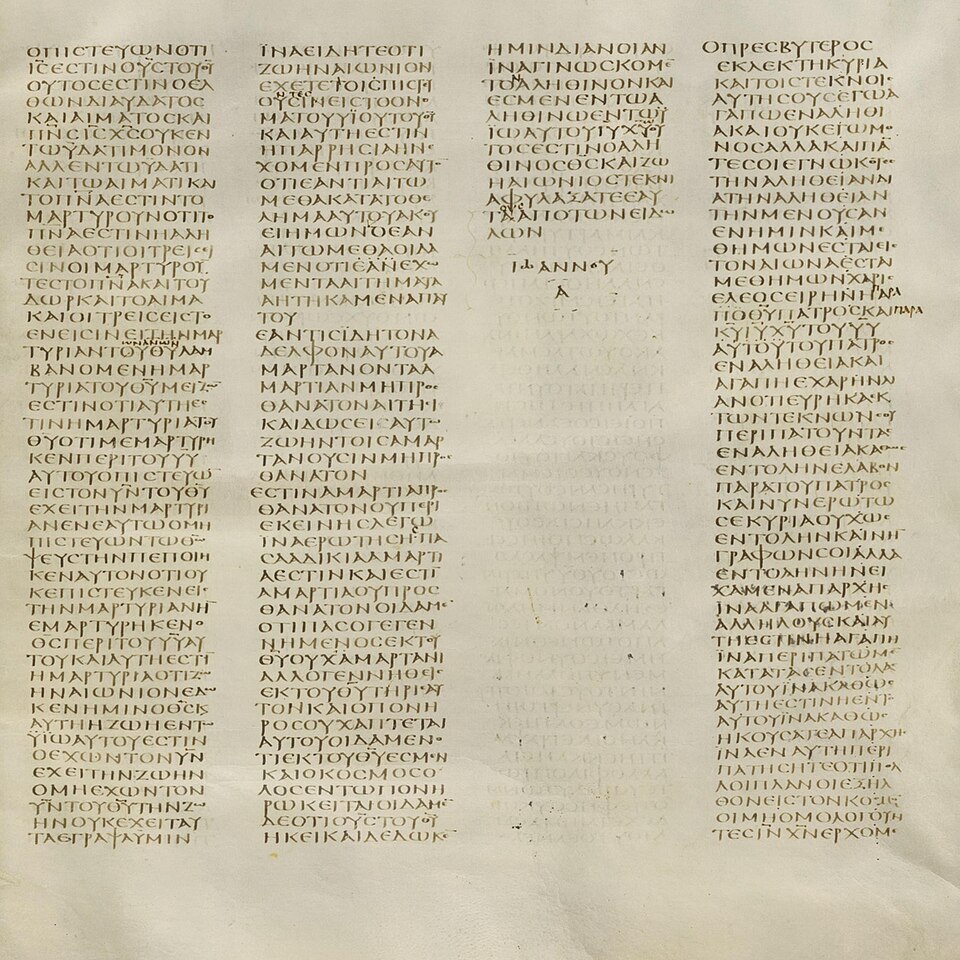 ΟΠΙCΤΕΥΩΝΟΤΙ
ΙCΕCΤΙΝΟΥCΤΟΥΘΥ
ΟΥΤΟCΕCΤΙΝΟΕΛ
ΘΩΝΔΙΑΥΔΑΤΟC
ΚΑΙΑΙΜΑΤΟCΚΑΙ
ΠΝCΙCΧCΟΥΚΕΝ
ΤΩΥΔΑΤΙΜΟΝΟΝ
ΑΛΛΕΝΤΩΥΔΑΤΙ
ΚΑΙΤΩΑΙΜΑΤΙΚΑΙ
ΤΟΠΝΑΕCΤΙΝΤΟ
ΜΑΡΤΥΡΟΥΝΟΤΙΤΟ
ΠΝΑΕCΤΙΝΗΑΛΗ
ΘΕΙΑΟΤΙΟΙΤΡΕΙC
CΙΝΟΙΜΑΡΤΥΡΟΥ
ΤΕCΤΟΠΝΑΚΑΙΤΟΥ
ΔΩΡΚΑΙΤΟΑΙΜΑ
ΚΑΙΟΙΤΡΕΙCΕΙCΤΟ
ΕΝΕΙCΙΝΕΙΤΗΝΜΑΡ
ΤΥΡΙΑΝΤΟΥΘΥΛΑΜ
ΒΑΝΟΜΕΝΗΜΑΡ
ΤΥΡΙΑΤΟΥΘΥΜΕΙΖΩ
ΕCΤΙΝΟΤΙΑΥΤΗΕC
ΤΙΝΗΜΑΡΤΥΡΙΑΤΟΥ
ΘΥΟΤΙΜΕΜΑΡΤΥΡΗ
ΚΕΝΠΕΡΙΤΟΥΥΥ
ΑΥΤΟΥΟΠΙCΤΕΥΩ
ΕΙCΤΟΝΥΝΤΟΥΘΥ
ΕΧΕΙΤΗΝΜΑΡΤΥΡΙ
ΑΝΕΝΕΑΥΤΩΟΜΗ
ΠΙCΤΕΥΩΝΤΩΘΩ
ΨΕΥCΤΗΝΠΕΠΟΙΗ
ΚΕΝΑΥΤΟΝΟΤΙΟΥ
ΚΕΠΙCΤΕΥΚΕΝΕΙC
ΤΗΝΜΑΡΤΥΡΙΑΝΗ
ΕΜΑΡΤΥΡΗΚΕΝΟ
ΘCΠΕΡΙΤΟΥΥΥΑΥ
ΤΟΥΚΑΙΑΥΤΗΕCΤΙ
ΗΜΑΡΤΥΡΙΑΟΤΙΖΩ
ΗΝΑΙΩΝΙΟΝΕΔΩ
ΚΕΝΗΜΙΝΟΘCΚ
ΑΥΤΗΗΖΩΗΕΝΤΩ
ΥΙΩΑΥΤΟΥΕCΤΙΝ
ΟΕΧΩΝΤΟΝΥΝ
ΕΧΕΙΤΗΝΖΩΗΝ
ΟΜΗΕΧΩΝΤΟΝ
ΥΝΤΟΥΘΥΤΗΝΖΩ
ΗΝΟΥΚΕΧΕΙΤΑΥ
ΤΑΕΓΡΑΨΑΥΜΙΝ
ΙΝΑΕΙΔΗΤΕΟΤΙ
ΖΩΗΝΑΙΩΝΙΟΝ
ΕΧΕΤΕΤΟΙCΠΙCΤΕΥ
ΟΥCΙΝΕΙCΤΟΟΝΟ
ΜΑΤΟΥΥΙΟΥΤΟΥΘΥ
ΚΑΙΑΥΤΗΕCΤΙΝ
ΗΠΑΡΡΗCΙΑΗΝΕ
ΧΟΜΕΝΠΡΟCΑΥΤΟ
ΟΤΙΕΑΝΤΙΑΙΤΩ
ΜΕΘΑΚΑΤΑΤΟΘΕ
ΛΗΜΑΑΥΤΟΥΑΚΟΥ
ΕΙΗΜΩΝΟΕΑΝ
ΑΙΤΩΜΕΘΑΟΙΔΑ
ΜΕΝΟΤΙΕΑΝΕΧΩ
ΜΕΝΤΑΑΙΤΗΜΑΤΑ
ΑΗΤΗΚΑΜΕΝΑΠΑΥ
ΤΟΥ
ΕΑΝΤΙCΙΔΗΤΟΝΑ
ΔΕΛΦΟΝΑΥΤΟΥΑ
ΜΑΡΤΑΝΟΝΤΑΑ
ΜΑΡΤΙΑΝΜΗΠΡΟC
ΘΑΝΑΤΟΝΑΙΤΗCΙ
ΚΑΙΔΩCΕΙCΑΥΤΩ
ΖΩΗΝΤΟΙCΑΜΑΡ
ΤΑΝΟΥCΙΝΜΗΠΡΟC
ΘΑΝΑΤΟΝ
ΕCΤΙΝΑΜΑΡΤΙΑΠΡΟC
ΘΑΝΑΤΟΝΟΥΠΕΡΙ
ΕΚΕΙΝΗCΛΕΓΩ
ΙΝΑΕΡΩΤΗCΗΠΑ
CΑΑΔΙΚΙΑΑΜΑΡΤΙ
ΑΕCΤΙΝΚΑΙΕCΤΙ
ΑΜΑΡΤΙΑΟΥΠΡΟC
ΘΑΝΑΤΟΝΟΙΔΑΜΕ
ΟΤΙΠΑCΟΓΕΓΕΝ
ΝΗΜΕΝΟCΕΚΤΟΥ
ΘΥΟΥΧΑΜΑΡΤΑΝΙ
ΑΛΛΟΓΕΝΝΗΘΕΙC
ΕΚΤΟΥΘΥΤΗΡΙΕΑΥ
ΤΟΝΚΑΙΟΠΟΝΗ
ΡΟCΟΥΧΑΠΤΕΤΑΙ
ΑΥΤΟΥΟΙΔΑΜΕΝΟ
ΤΙΕΚΤΟΥΘΥΕCΜΕΝ
ΚΑΙΟΚΟCΜΟCΟ
ΛΟCΕΝΤΩΠΟΝΗ
ΡΩΚΕΙΤΑΙΟΙΔΑΜΕ
ΔΕΟΤΙΟΥCΤΟΥΘΥ
ΗΚΕΙΚΑΙΔΕΔΩΚΕ
ΗΜΙΝΔΙΑΝΟΙΑΝ
ΙΝΑΓΙΝΩCΚΟΜΕ
ΤΟΑΛΗΘΙΝΟΝΚΑΙ
ΕCΜΕΝΕΝΤΩΑ
ΛΗΘΙΝΩΕΝΤΩΥ
ΙΩΑΥΤΟΥΙΥΧΥΟΥ
ΤΟCΕCΤΙΝΟΑΛΗ
ΘΙΝΟCΘCΚΑΙΖΩ
ΗΑΙΩΝΙΟCΤΕΚΝΙ
ΑΦΥΛΑΞΑΤΕΕΑΥ
ΤΑΑΠΟΤΩΝΕΙΔΩ
ΛΩΝ
ΙΩΑΝΝΟΥ
Α
ΟΠΡΕCΒΥΤΕΡΟC
ΕΚΛΕΚΤΗΚΥΡΙΑ
ΚΑΙΤΟΙCΤΕΚΝΟΙC
ΑΥΤΗCΟΥCΕΓΩΑ
ΓΑΠΩΕΝΑΛΗΘΙ
ΑΚΑΙΟΥΚΕΓΩΜΟ
ΝΟCΑΛΛΑΚΑΙΠΑ
ΤΕCΟΙΕΓΝΩΚΟΤΕC
ΤΗΝΑΛΗΘΕΙΑΝΔΙ
ΑΤΗΝΑΛΗΘΕΙΑΝ
ΤΗΝΜΕΝΟΥCΑΝ
ΕΝΗΜΙΝΚΑΙΜΕ
ΘΗΜΩΝΕCΤΑΙΕΙC
ΤΟΝΑΙΩΝΑΕCΤΑΙ
ΜΕΘΗΜΩΝΧΑΡΙC
ΕΛΕΟCΕΙΡΗΝΗΠΑΡΑ
ΠΟΘΥΠΑΤΡΟCΚΑΙΠΑΡΑ
ΚΥΙΥΧΥΤΟΥΥΥ
ΑΥΤΟΥΤΟΥΠΑΤΡΟC
ΕΝΑΛΗΘΕΙΑΚΑΙ
ΑΓΑΠΗΕΧΑΡΗΝΛΙ
ΑΝΟΤΙΕΥΡΗΚΑΕΚ
ΤΩΝΤΕΚΝΩΝCΟΥ
ΠΕΡΙΠΑΤΟΥΝΤΑC
ΕΝΑΛΗΘΕΙΑΚΑΘΩC
ΕΝΤΟΛΗΝΕΛΑΒΟΝ
ΠΑΡΑΤΟΥΠΑΤΡΟC
ΚΑΙΝΥΝΕΡΩΤΩ
CΕΚΥΡΙΑΟΥΧΩC
ΕΝΤΟΛΗΝΚΑΙΝΗ
ΓΡΑΦΩΝCΟΙΑΛΛΑ
ΕΝΤΟΛΗΝΗΝΕΙ
ΧΑΜΕΝΑΠΑΡΧΗC
ΙΝΑΑΓΑΠΩΜΕΝ
ΑΛΛΗΛΟΥCΚΑΙΑΥ
ΤΗΕCΤΙΝΗΑΓΑΠΗ
ΙΝΑΠΕΡΙΠΑΤΩΜΕ
ΚΑΤΑΤΑCΕΝΤΟΛΑC
ΑΥΤΟΥΙΝΑΚΑΘΩC
ΑΥΤΗΕCΤΙΝΗΕΝΤ
ΑΥΤΟΥΙΝΑΚΑΘΩC
ΗΚΟΥCΑΤΕΑΠΑΡΧΗC
ΙΝΑΕΝΑΥΤΗΠΕΡΙ
ΠΑΤΗCΗΤΕΟΤΙΠΟΛ
ΛΟΙΠΛΑΝΟΙΕΞΗΛ
ΘΟΝΕΙCΤΟΝΚΟCΜΟ
ΟΙΜΗΟΜΟΛΟΓΟΥΝ
ΤΕCΙΝΧΝΕΡΧΟΜΕ